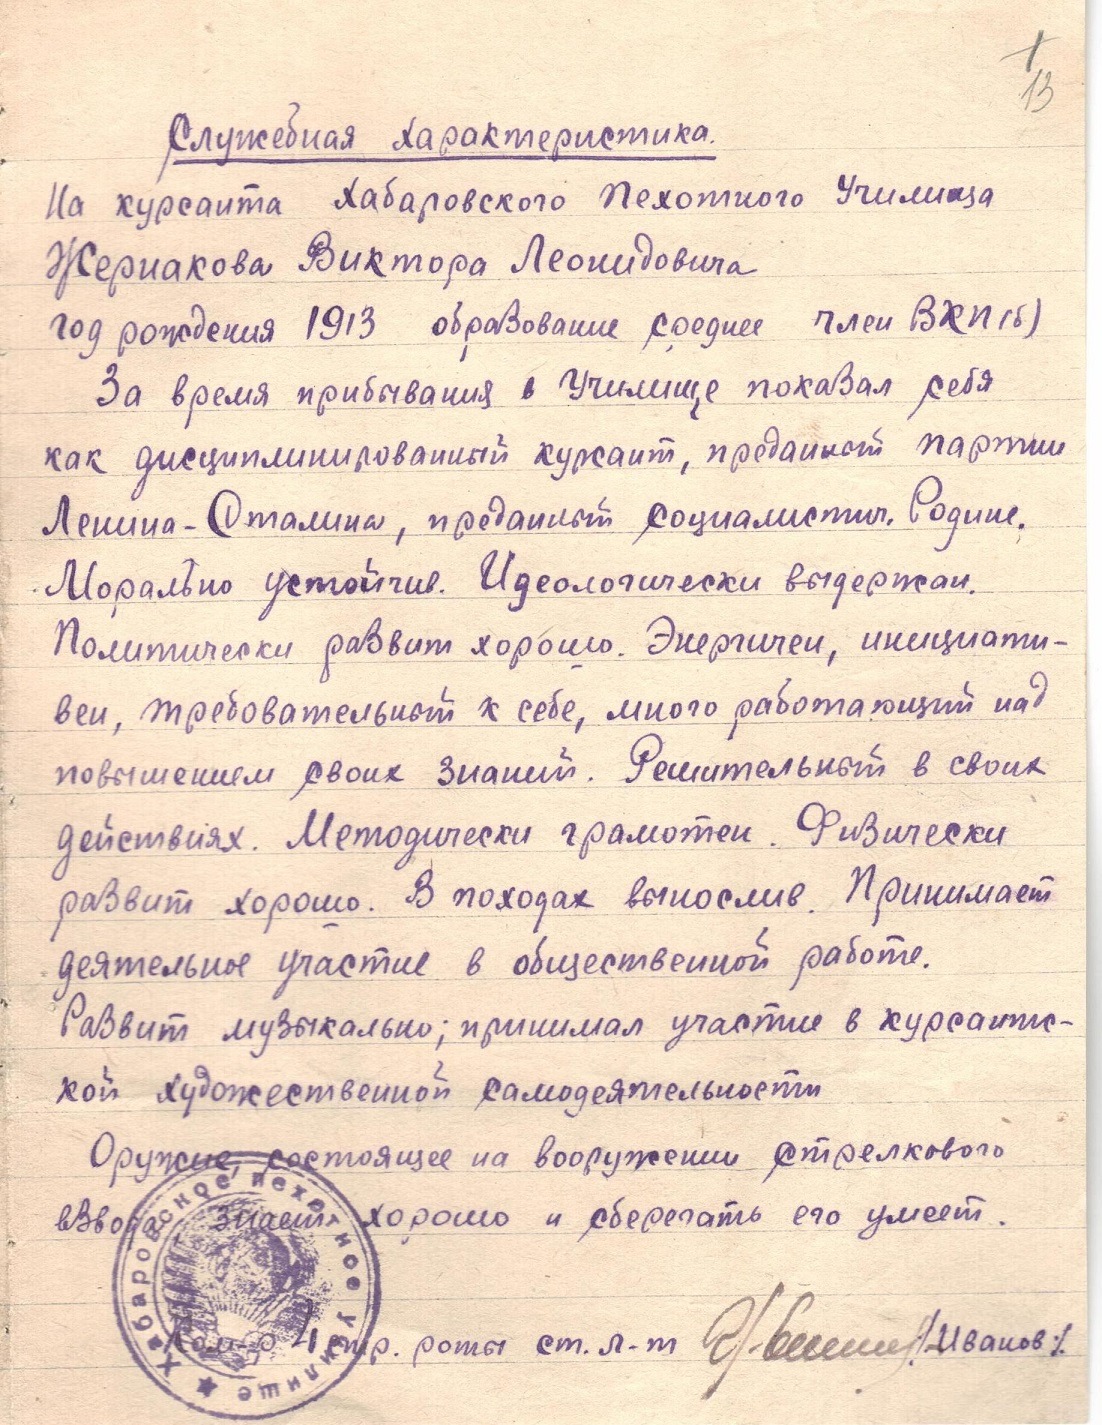 1
13
Служебная характеристика.
На курсанта Хабаровского Пехотного Училища
Жернакова Виктора Леонидовича
год рождения 1913 образование среднее член ВКП(б)
За время прибывания в Училище показал себя
как дисциплинированный курсант, преданный партии
Ленина-Сталина, преданный социалистич. Родине.
Морально устойчив. Идеологически выдержан.
Политически развит хорошо. Энергичен, инициати-
вен, требовательный к себе, много работающий над
повышением своих знаний. Решительный в своих
действиях. Методически грамотен. Физически
развит хорошо. В походах вынослив. Принимает
деятельное участие в общественной работе.
Развит музыкально; принимал участие в курсантс-
кой художественной самодеятельности
Оружие, состоящее на вооружении стрелкового
взвода знает хорошо и сберегать его умеет.
Хабаровское пехотное училище
Ком-р 4 стр. роты ст. л-т /Иванов/.